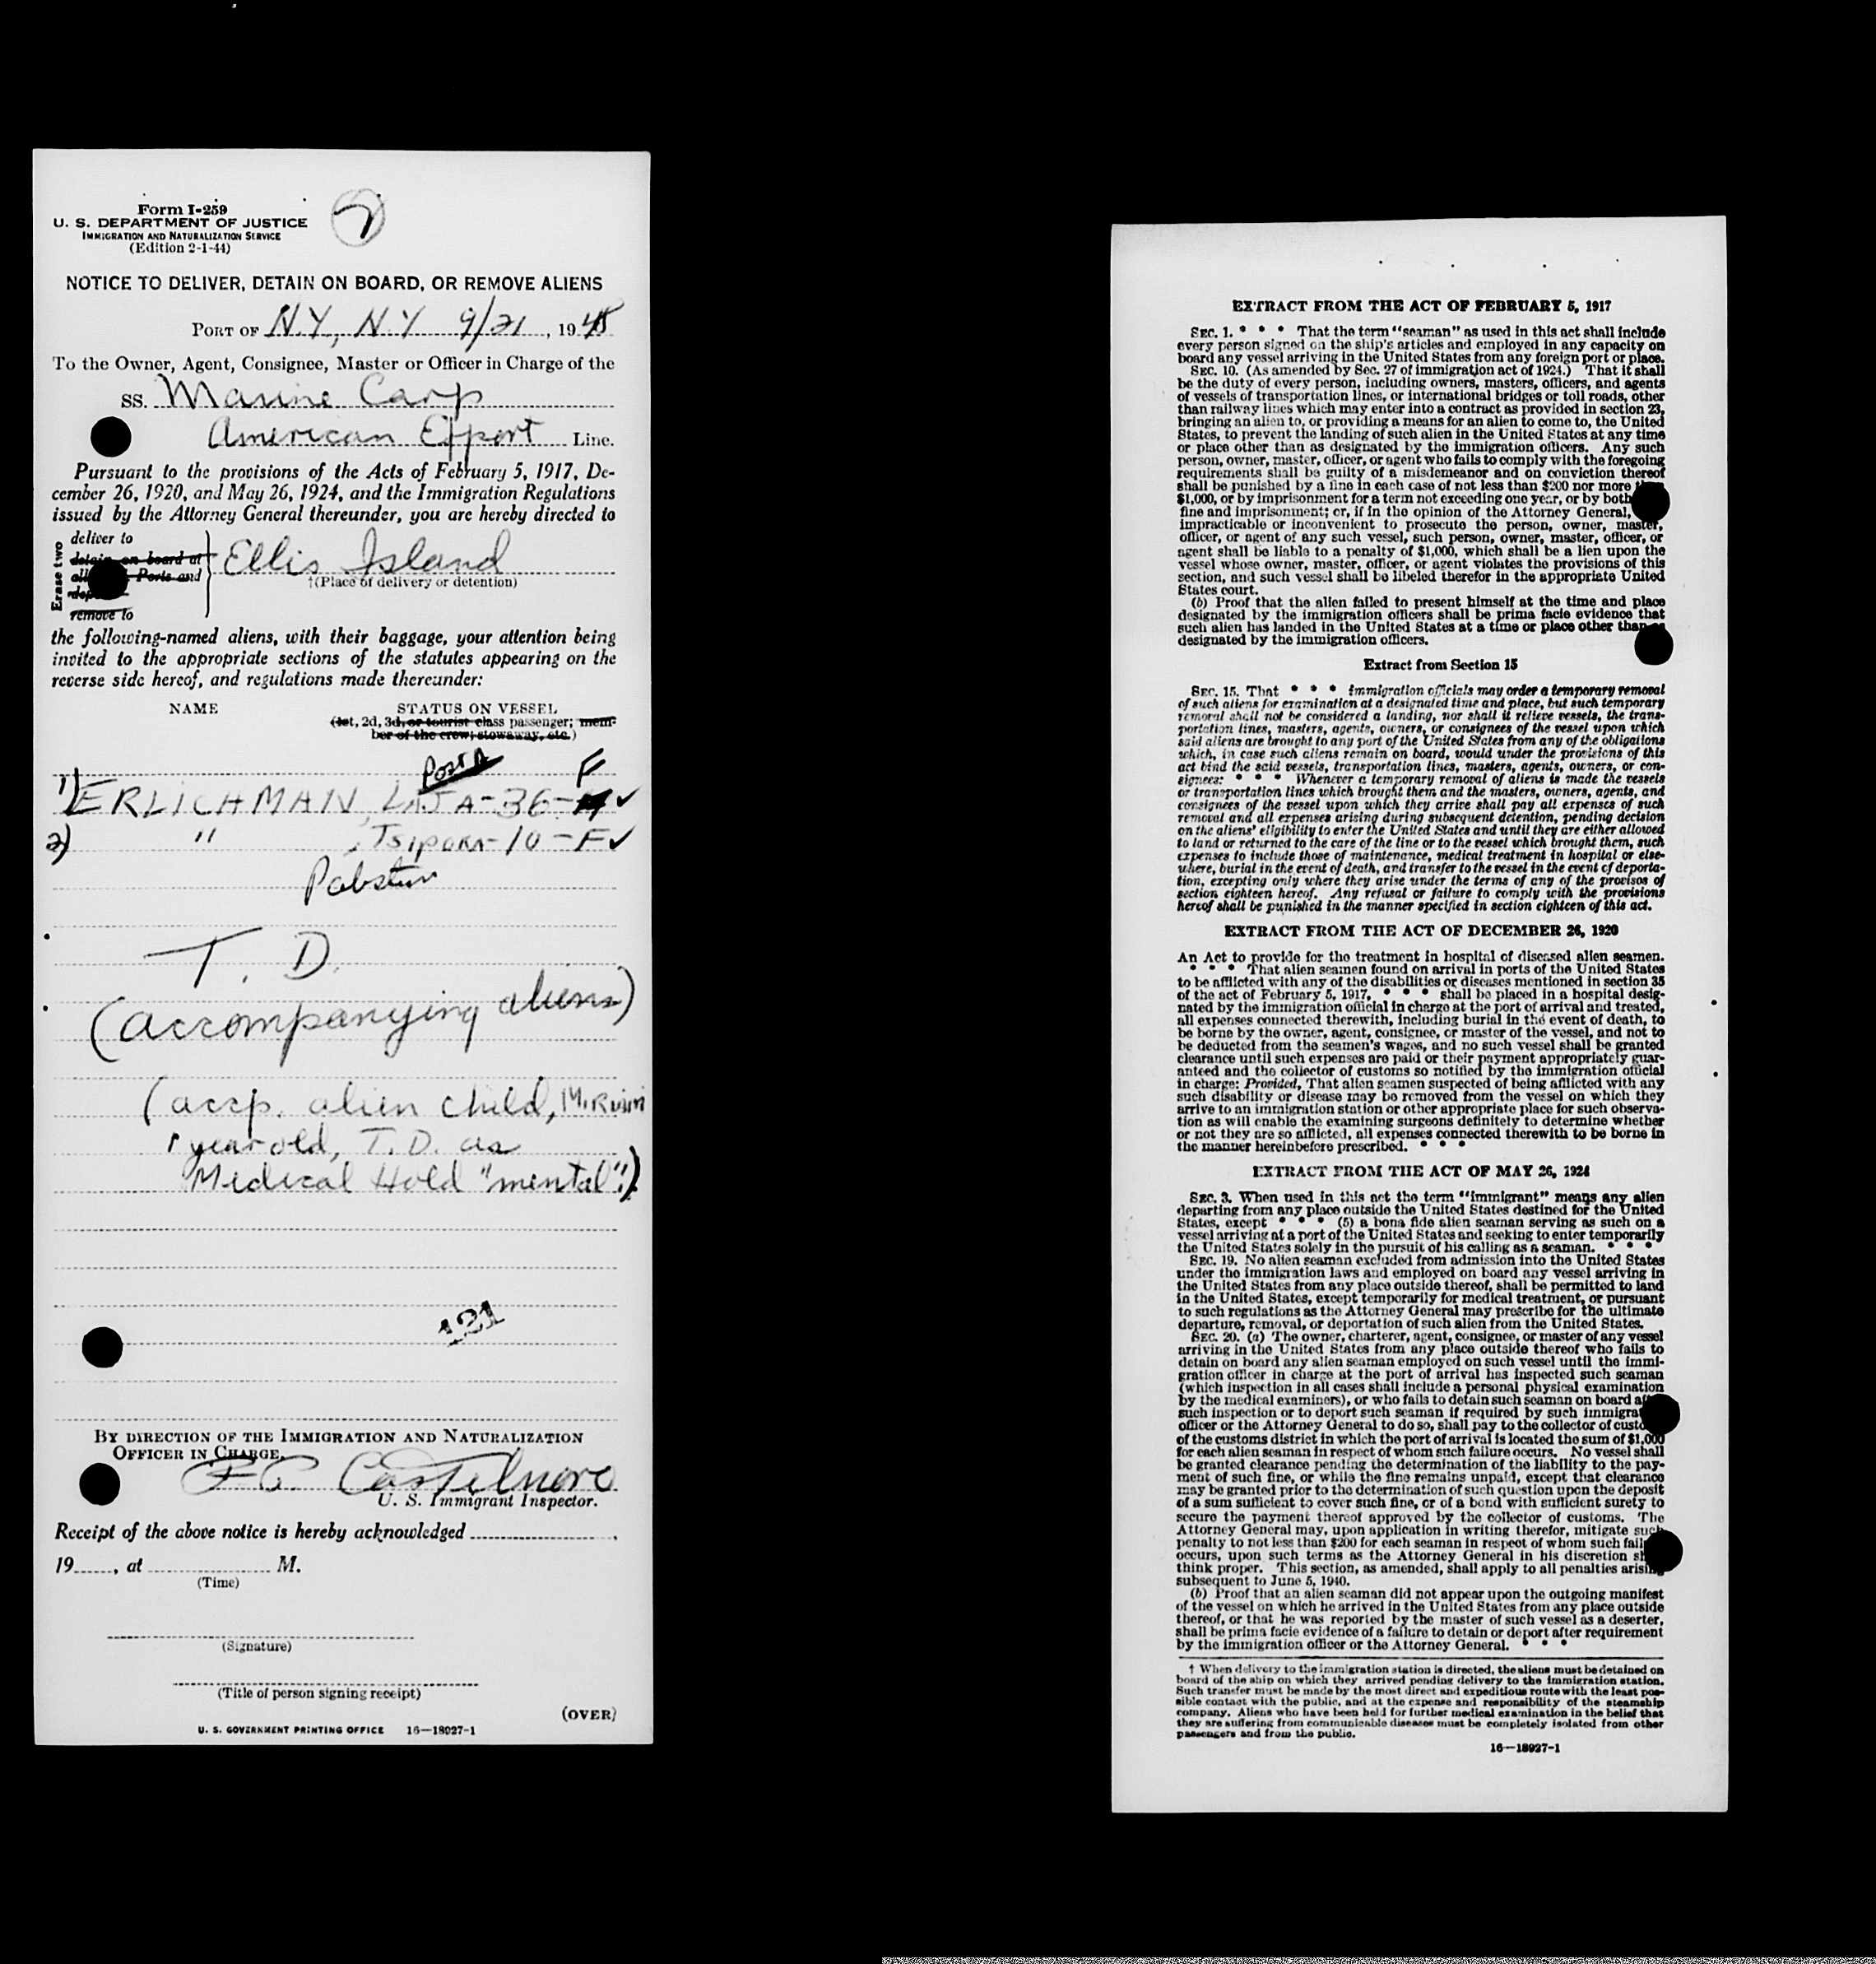 Form I-259
U. S. DEPARTMENT OF JUSTICE
IMMIGRATION AND NATURALIZATION SERVICE
(Edition 2-1-44)
7
NOTICE TO DELIVER, DETAIN ON BOARD, OR REMOVE ALIENS
PORT OF N.Y., N.Y 9/21, 1948
To the Owner, Agent, Consignee, Master or Officer in Charge of the
SS. Marine Carp
American Export Line.
Pursuant to the provisions of the Acts of February 5, 1917, De-
cember 26, 1920, and May 26, 1924, and the Immigration Regulations
issued by the Attorney General thereunder, you are hereby directed to
Erase two
deliver to
detain on board at
all Ports and
remove to
Ellis Island
†(Place of delivery or detention)
the following-named aliens, with their baggage, your attention being
invited to the appropriate sections of the statutes appearing on the
reverse side hereof, and regulations made thereunder:
NAME STATUS ON VESSEL
(1st, 2d, 3d, or tourist class passenger; mem-
ber of the crew; stowaway, etc.)
F
1) ERLICHMAN, LAJA-36- ✓
2) " , TSIPORA-10-F ✓
T. D.
(accompanying aliens)
(accp. alien child,
1 year old, T.D. as
Medical Hold "mental".)
121
BY DIRECTION OF THE IMMIGRATION AND NATURALIZATION
OFFICER IN CHARGE,
U. S. Immigrant Inspector.
Receipt of the above notice is hereby acknowledged ,
19 , at M.
(Time)
(Signature)
(Title of person signing receipt)
(OVER)
U. S. GOVERNMENT PRINTING OFFICE 16—18927-1
EXTRACT FROM THE ACT OF FEBRUARY 5, 1917
SEC. 1. * * * That the term "seaman" as used in this act shall include
every person signed on the ship's articles and employed in any capacity on
board any vessel arriving in the United States from any foreign port or place.
SEC. 10. (As amended by Sec. 27 of immigration act of 1924.) That it shall
be the duty of every person, including owners, masters, officers, and agents
of vessels of transportation lines, or international bridges or toll roads, other
than railway lines which may enter into a contract as provided in section 23,
bringing an alien to, or providing a means for an alien to come to, the United
States, to prevent the landing of such alien in the United States at any time
or place other than as designated by the immigration officers. Any such
person, owner, master, officer, or agent who fails to comply with the foregoing
requirements shall be guilty of a misdemeanor and on conviction thereof
shall be punished by a fine in each case of not less than $200 nor more
$1,000, or by imprisonment for a term not exceeding one year, or by both
fine and imprisonment; or, if in the opinion of the Attorney General,
impracticable or inconvenient to prosecute the person, owner, master,
officer, or agent of any such vessel, such person, owner, master, officer, or
agent shall be liable to a penalty of $1,000, which shall be a lien upon the
vessel whose owner, master, officer, or agent violates the provisions of this
section, and such vessel shall be libeled therefor in the appropriate United
States court.
(b) Proof that the alien failed to present himself at the time and place
designated by the immigration officers shall be prima facie evidence that
such alien has landed in the United States at a time or place other than as
designated by the immigration officers.
Extract from Section 15
SEC. 15. That * * * immigration officials may order a temporary removal
of such aliens for examination at a designated time and place, but such temporary
removal shall not be considered a landing, nor shall it relieve vessels, the trans-
portation lines, masters, agents, owners, or consignees of the vessel upon which
said aliens are brought to any port of the United States from any of the obligations
which, in case such aliens remain on board, would under the provisions of this
act bind the said vessels, transportation lines, masters, agents, owners, or con-
signees: * * * Whenever a temporary removal of aliens is made the vessels
or transportation lines which brought them and the masters, owners, agents, and
consignees of the vessel upon which they arrive shall pay all expenses of such
removal and all expenses arising during subsequent detention, pending decision
on the aliens' eligibility to enter the United States and until they are either allowed
to land or returned to the care of the line or to the vessel which brought them, such
expenses to include those of maintenance, medical treatment in hospital or else-
where, burial in the event of death, and transfer to the vessel in the event of deporta-
tion, excepting only where they arise under the terms of any of the provisos of
section eighteen hereof. Any refusal or failure to comply with the provisions
hereof shall be punished in the manner specified in section eighteen of this act.
EXTRACT FROM THE ACT OF DECEMBER 26, 1920
An Act to provide for the treatment in hospital of diseased alien seamen.
* * * That alien seamen found on arrival in ports of the United States
to be afflicted with any of the disabilities or diseases mentioned in section 35
of the act of February 5, 1917, * * * shall be placed in a hospital desig-
nated by the immigration official in charge at the port of arrival and treated,
all expenses connected therewith, including burial in the event of death, to
be borne by the owner, agent, consignee, or master of the vessel, and not to
be deducted from the seamen's wages, and no such vessel shall be granted
clearance until such expenses are paid or their payment appropriately guar-
anteed and the collector of customs so notified by the immigration official
in charge: Provided, That alien seamen suspected of being afflicted with any
such disability or disease may be removed from the vessel on which they
arrive to an immigration station or other appropriate place for such observa-
tion as will enable the examining surgeons definitely to determine whether
or not they are so afflicted, all expenses connected therewith to be borne in
the manner hereinbefore prescribed. * * *
EXTRACT FROM THE ACT OF MAY 26, 1924
SEC. 3. When used in this act the term "immigrant" means any alien
departing from any place outside the United States destined for the United
States, except * * * (5) a bona fide alien seaman serving as such on a
vessel arriving at a port of the United States and seeking to enter temporarily
the United States solely in the pursuit of his calling as a seaman. * * *
SEC. 19. No alien seaman excluded from admission into the United States
under the immigration laws and employed on board any vessel arriving in
the United States from any place outside thereof, shall be permitted to land
in the United States, except temporarily for medical treatment, or pursuant
to such regulations as the Attorney General may prescribe for the ultimate
departure, removal, or deportation of such alien from the United States.
SEC. 20. (a) The owner, charterer, agent, consignee, or master of any vessel
arriving in the United States from any place outside thereof who fails to
detain on board any alien seaman employed on such vessel until the immi-
gration officer in charge at the port of arrival has inspected such seaman
(which inspection in all cases shall include a personal physical examination
by the medical examiners), or who fails to detain such seaman on board
such inspection or to deport such seaman if required by such
officer or the Attorney General to do so, shall pay to the collector of
of the customs district in which the port of arrival is located the sum of $1,000
for each alien seaman in respect of whom such failure occurs. No vessel shall
be granted clearance pending the determination of the liability to the pay-
ment of such fine, or while the fine remains unpaid, except that clearance
may be granted prior to the determination of such question upon the deposit
of a sum sufficient to cover such fine, or of a bond with sufficient surety to
secure the payment thereof approved by the collector of customs. The
Attorney General may, upon application in writing therefor, mitigate such
penalty to not less than $200 for each seaman in respect of whom such
occurs, upon such terms as the Attorney General in his discretion
think proper. This section, as amended, shall apply to all penalties arising
subsequent to June 5, 1940.
(b) Proof that an alien seaman did not appear upon the outgoing manifest
of the vessel on which he arrived in the United States from any place outside
thereof, or that he was reported by the master of such vessel as a deserter,
shall be prima facie evidence of a failure to detain or deport after requirement
by the immigration officer or the Attorney General. * * *
† When delivery to the immigration station is directed, the aliens must be detained on
board of the ship on which they arrived pending delivery to the immigration station.
Such transfer must be made by the most direct and expeditious route with the least pos-
sible contact with the public, and at the expense and responsibility of the steamship
company. Aliens who have been held for further medical examination in the belief that
they are suffering from communicable diseases must be completely isolated from other
passengers and from the public.
16—18927-1